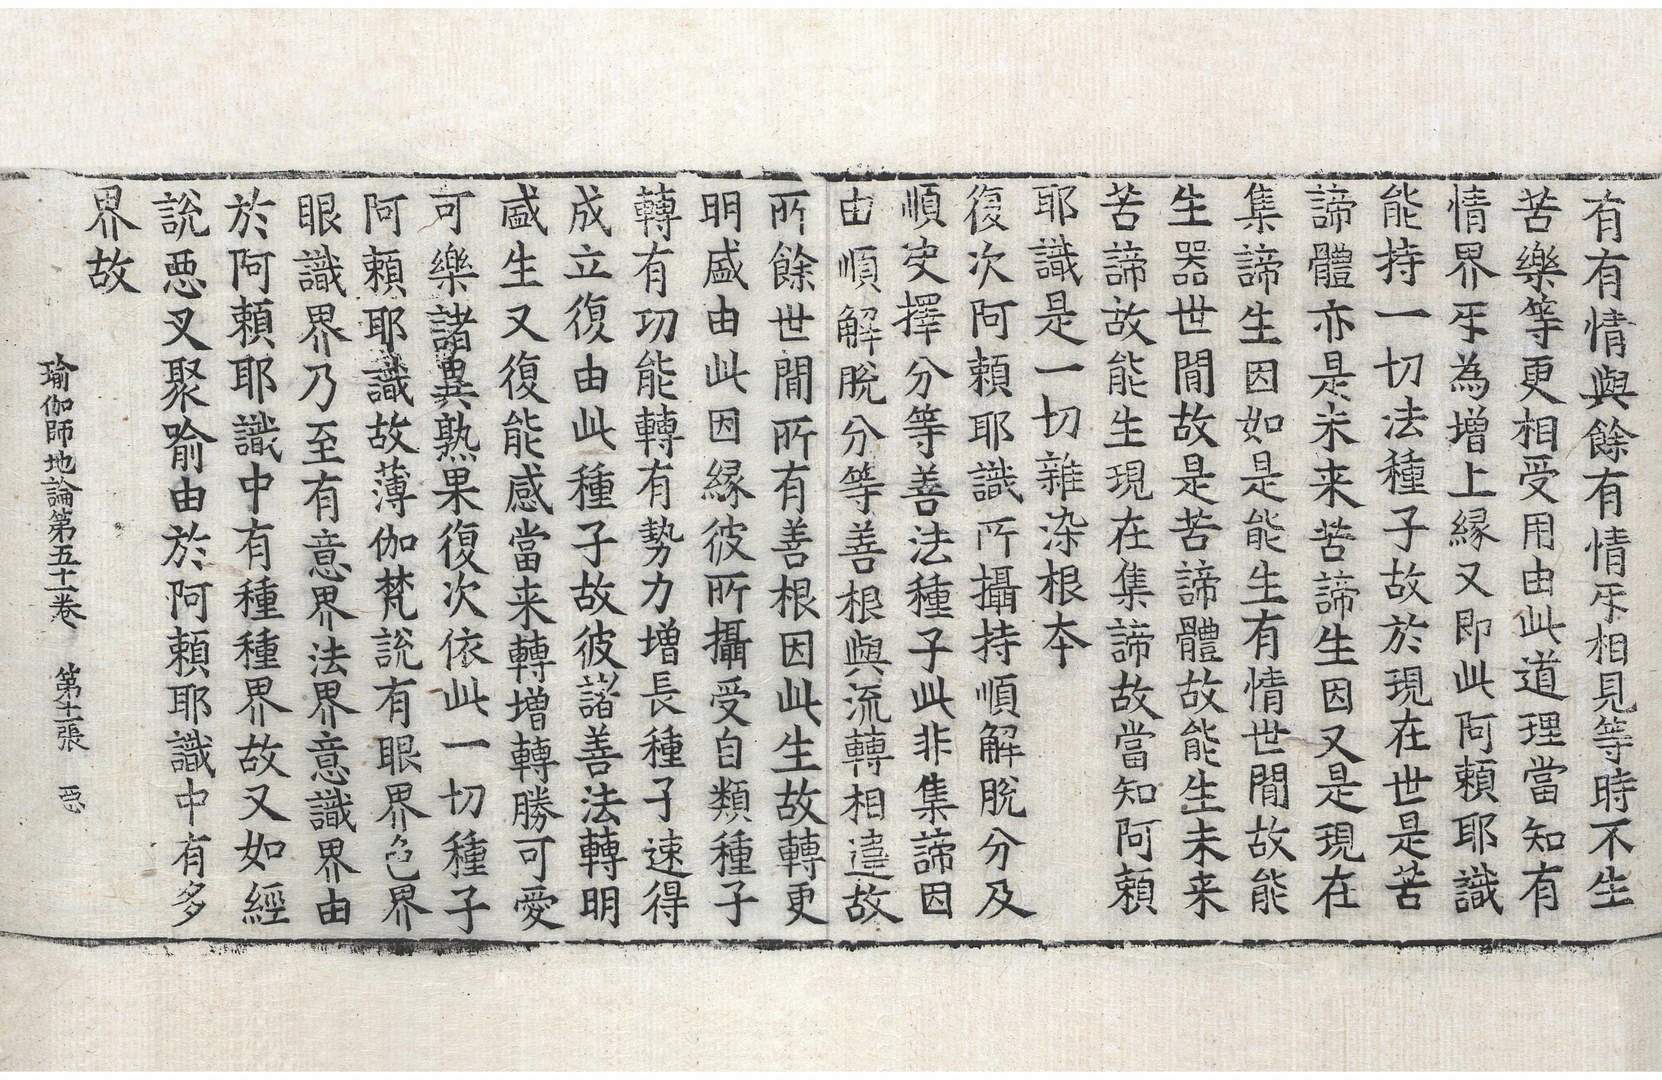 有有情與餘有情㸦相見等時不生
苦樂等更相受用由此道理當知有
情界㸦為増上縁又即此阿頼耶識
能持一切法種子故於現在世是苦
諦體亦是未来苦諦生因又是現在
集諦生因如是能生有情世間故能
生器世間故是苦諦體故能生未来
苦諦故能生現在集諦故當知阿頼
耶識是一切雜染根本
復次阿頼耶識所攝持順解脫分及
順決擇分等善法種子此非集諦因
由順解脫分等善根與流轉相違故
所餘世間所有善根因此生故轉更
明盛由此因縁彼所攝受自類種子
轉有功能轉有勢力増長種子速得
成立復由此種子故彼諸善法轉明
盛生又復能感當来轉増轉勝可愛
可樂諸異熟果復次依此一切種子
阿頼耶識故薄伽梵說有眼界色界
眼識界乃至有意界法界意識界由
於阿頼耶識中有種種界故又如經
說惡叉聚喻由於阿頼耶識中有多
界故
瑜伽師地論第五十一卷　第十一張　惡